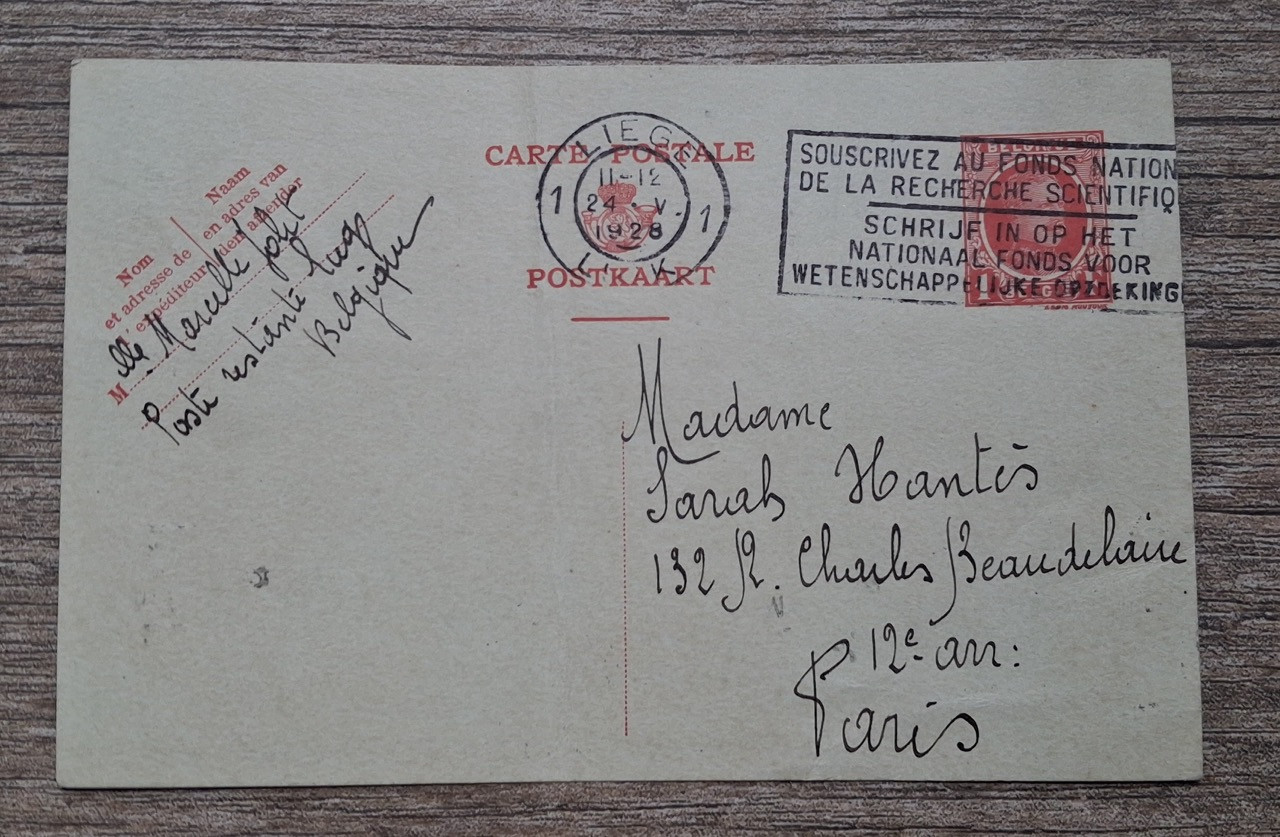 CARTE POSTALE
POSTKAART
LIEGE
1 1
11-12
24 V.
1928
SOUSCRIVEZ AU FONDS NATION
DE LA RECHERCHE SCIENTIFIQ
SCHRIJF IN OP HET
NATIONAAL FONDS VOOR
WETENSCHAPPELIJKE OPZOEKING
1
Nom
et adresse de
l'expéditeur
Naam
en adres van
den afzender
M
lle Marcelle
Poste restante
Belgique
Madame
Sarah Hantès
132 R. Charles Beaudelaire
12e arr:
Paris